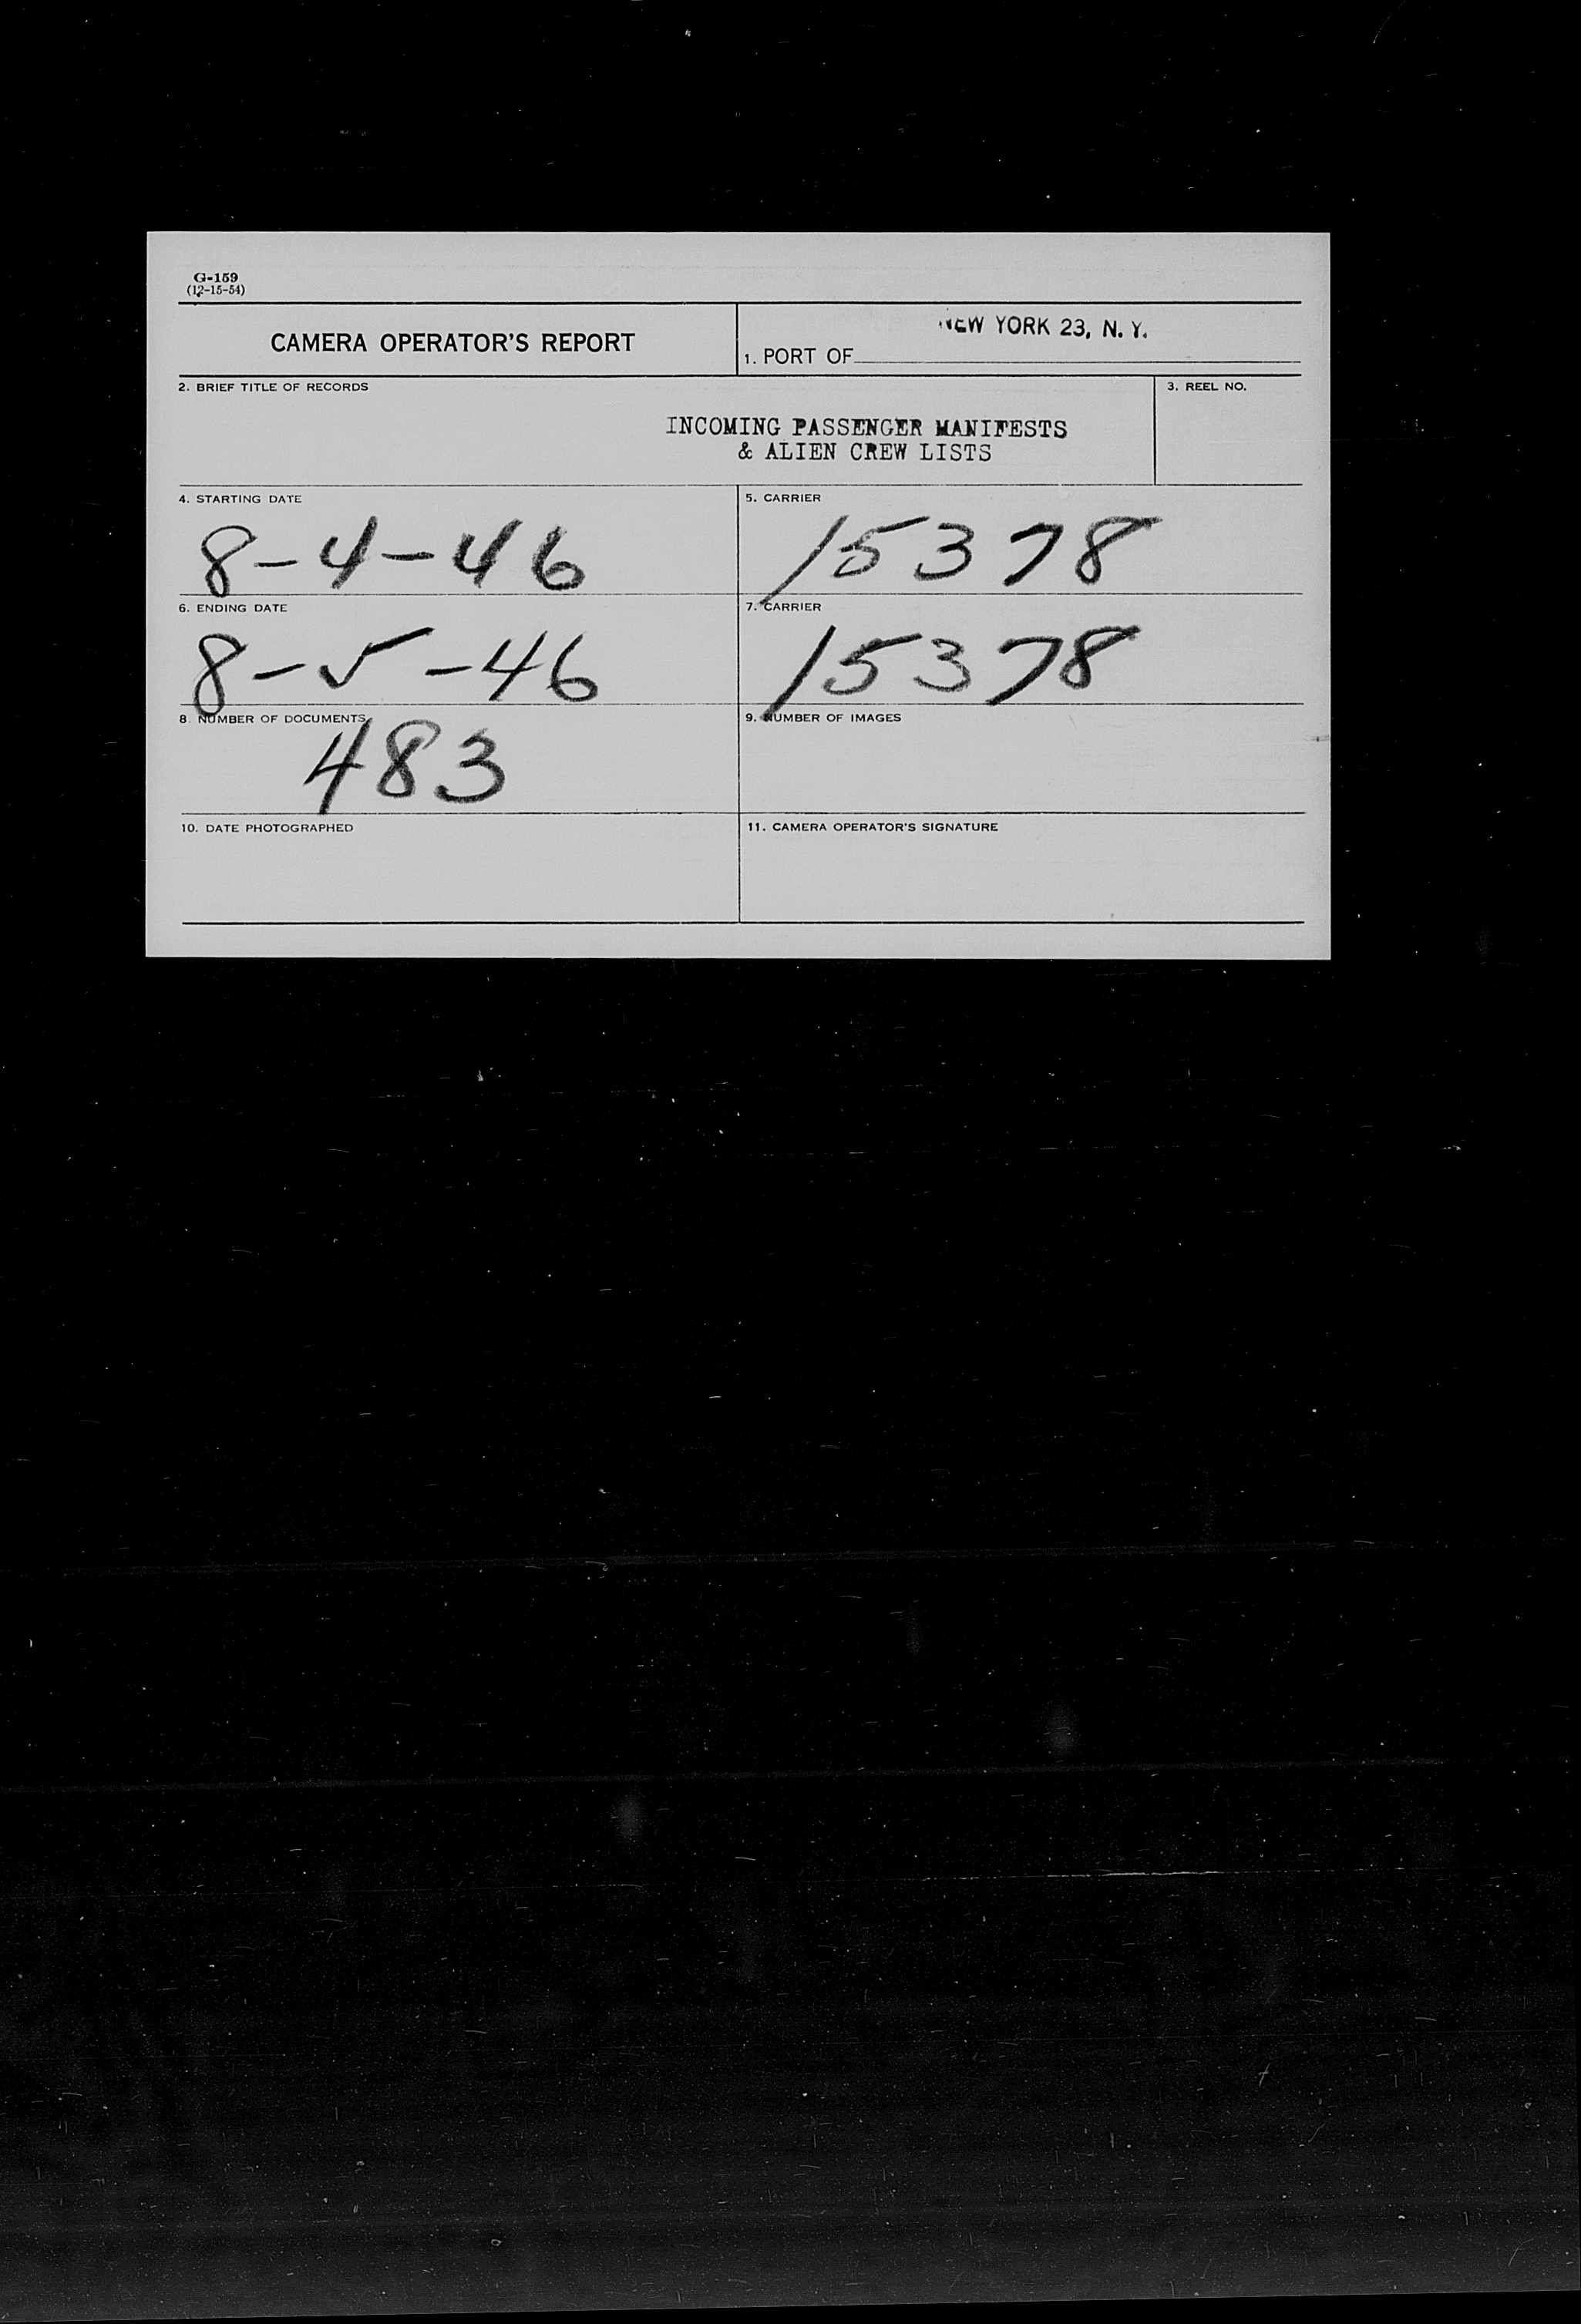 G-159
(12-15-54)
CAMERA OPERATOR'S REPORT
NEW YORK 23, N. Y.
1. PORT OF
2. BRIEF TITLE OF RECORDS
3. REEL NO.
INCOMING PASSENGER MANIFESTS
& ALIEN CREW LISTS
4. STARTING DATE
8-4-46
5. CARRIER
15378
6. ENDING DATE
8-5-46
7. CARRIER
15378
8. NUMBER OF DOCUMENTS
483
9. NUMBER OF IMAGES
10. DATE PHOTOGRAPHED
11. CAMERA OPERATOR'S SIGNATURE